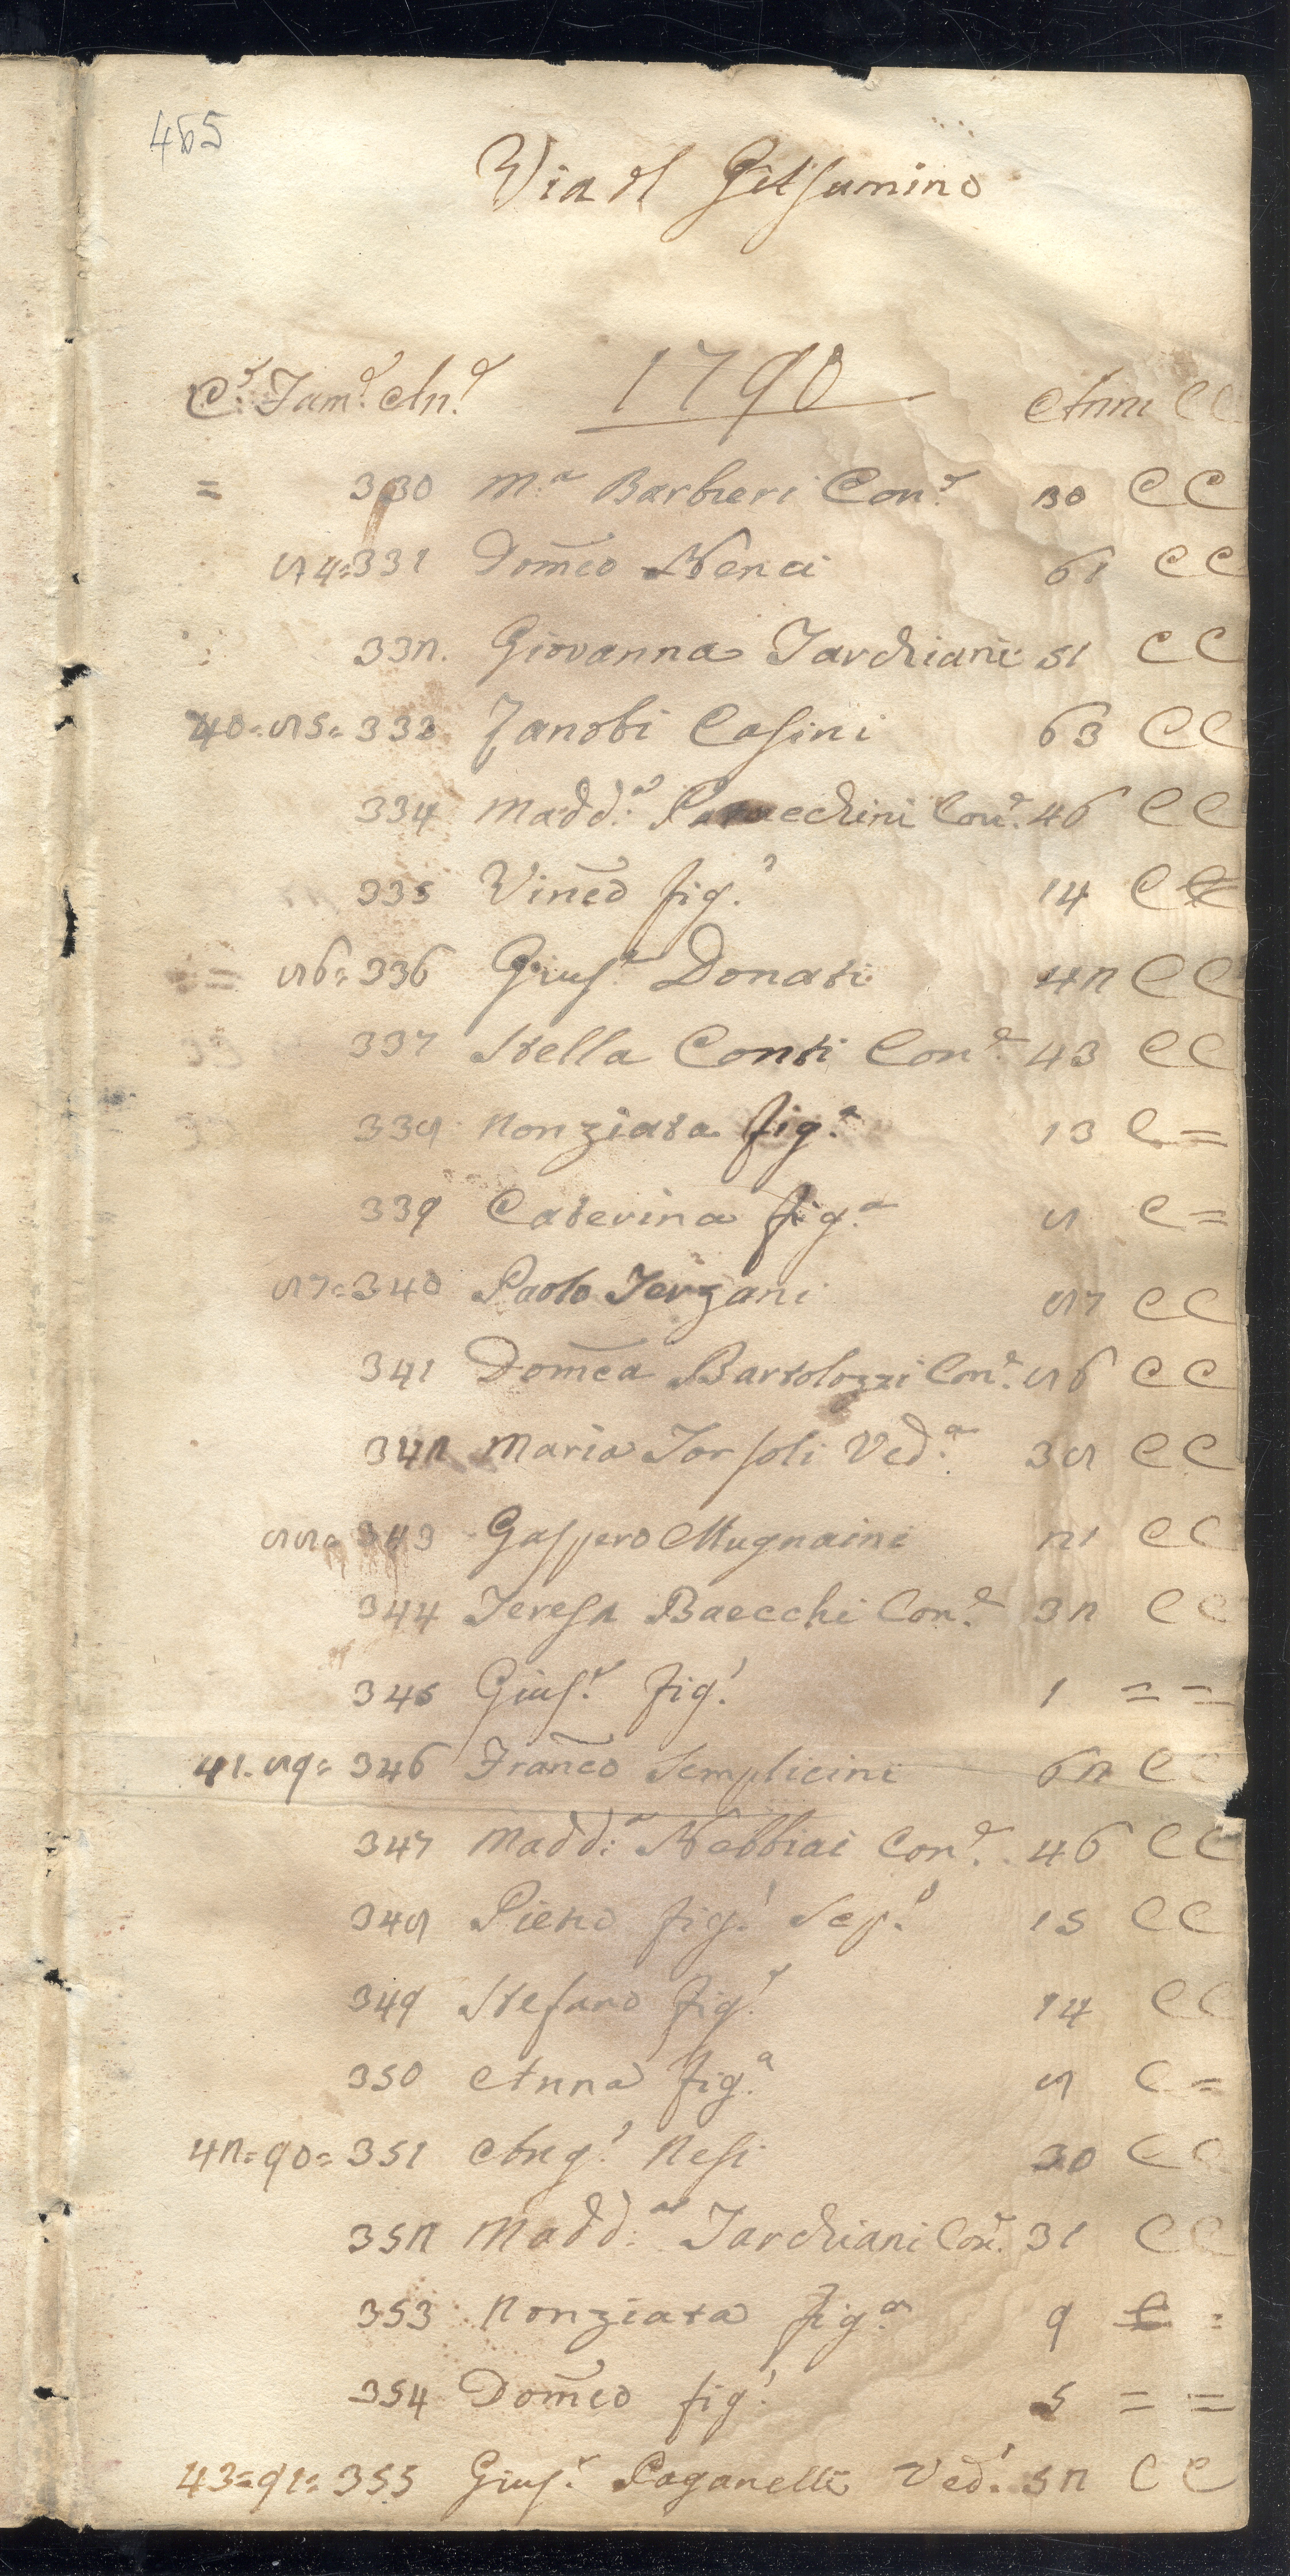 465
Via dl Gelsumino
C.e Fam.e An.e 1790 Anni CC
= 330 M.a Barbieri Con.e 30 CC
84=331 Domeco Nenci 61 CC
332. Giovanna Tarchiani 51 CC
40=85=333 Zanobi Casini 63 CC
334 Madd.a Con.e 46 CC
335 Vinco fig.o 14 CC
= 86=336 Gius.e Donati 42 CC
337 Stella Conti Con.e 43 CC
338 Nonziata fig.a 13 C=
339 Caterina fig.a 8 C=
87=340 Paolo Terzani 87 CC
341 Domeca Bartolozzi Con.e 86 CC
342 Maria Torsoli Ved.a 38 CC
88=343 Gaspero Mugnaini 21 CC
344 Teresa Baecchi Con.e 32 CC
345 Gius.e fig.o 1 = =
41=89=346 Franco Semplicini 62 CC
347 Madd.a Nebbiai Con.e 46 CC
348 Pietro fig.o Sep.o 15 CC
349 Stefano fig.o 14 CC
350 Anna fig.a 8 C=
42=90=351 Ang.o Nesi 30 CC
352 Madd.a Tarchiani Con.e 31 CC
353 Nonziata fig.a 9 C =
354 Domeco fig.o 5 = =
43=91=355 Gius.e Paganelli Ved.o 52 CC